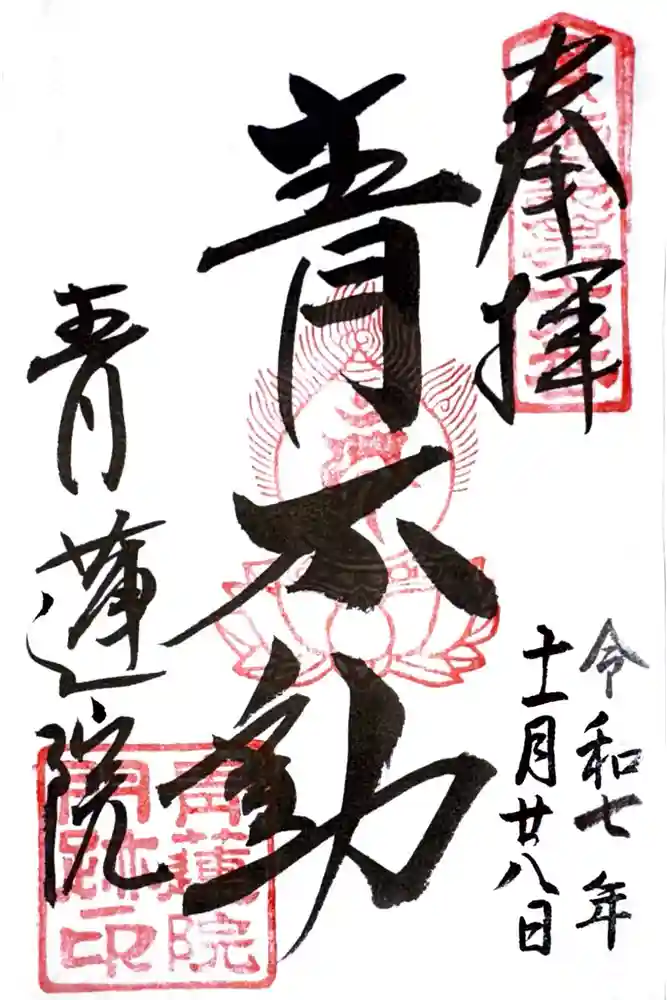 奉拝
令和七年
十一月廿八日
青不動
青蓮院
青蓮院
門跡
之印